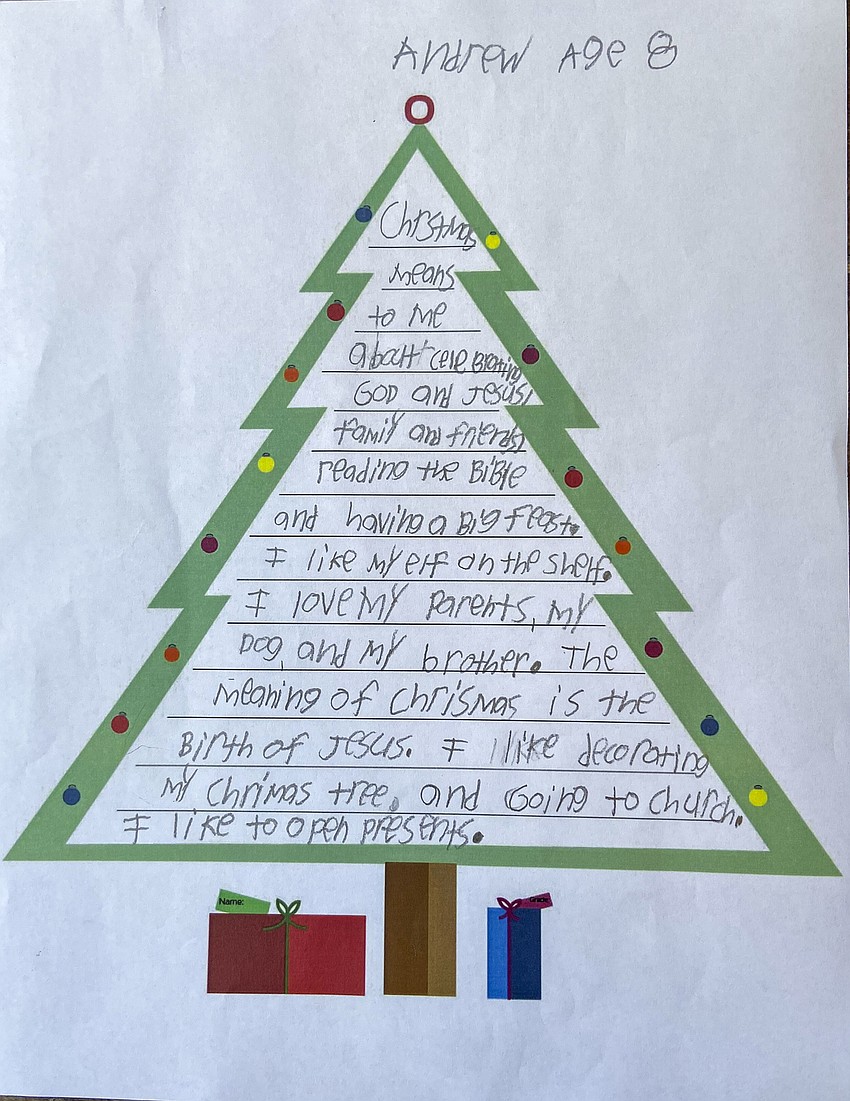 Andrew Age 8
Chrstmas
means
to me
about celebrating
GOD and Jesus,
family and friends,
reading the Bible
and having a Big feast.
I like my elf on the shelf.
I love my parents, my
Dog, and my brother. The
meaning of chrismas is the
Birth of Jesus. I like decorating
my chrimas tree, and Going to church.
I like to open presents.
Name:
Grade: